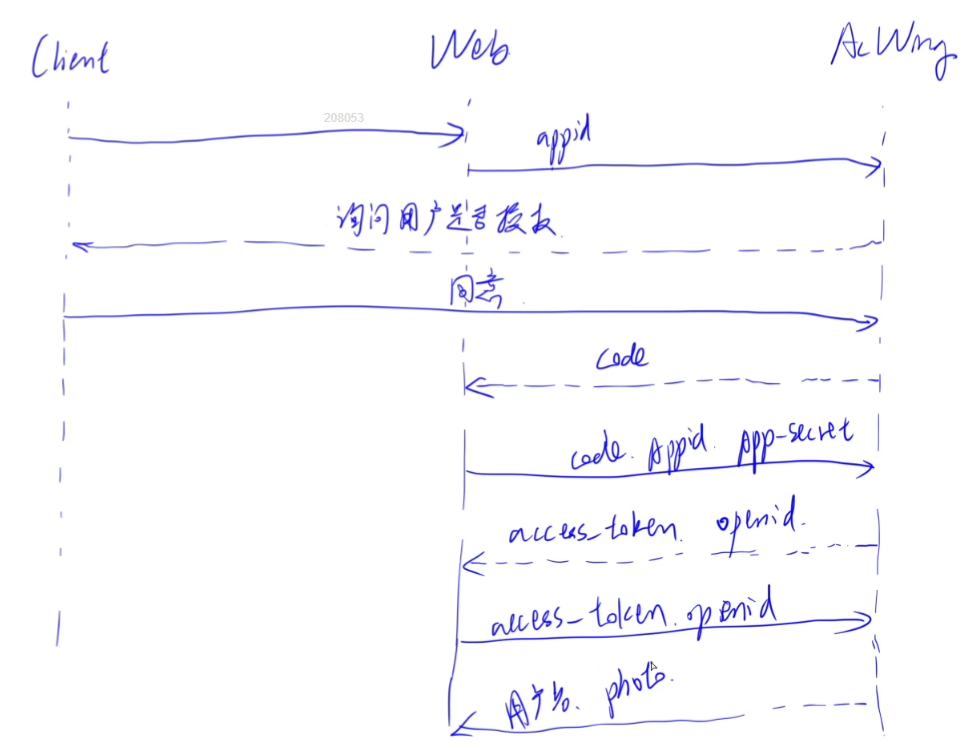 Client Web AcWing
208053
appid
询问用户是否授权
同意
code
code. Appid. App-secret
access_token. openid.
access_token. openid
用户名. photo.